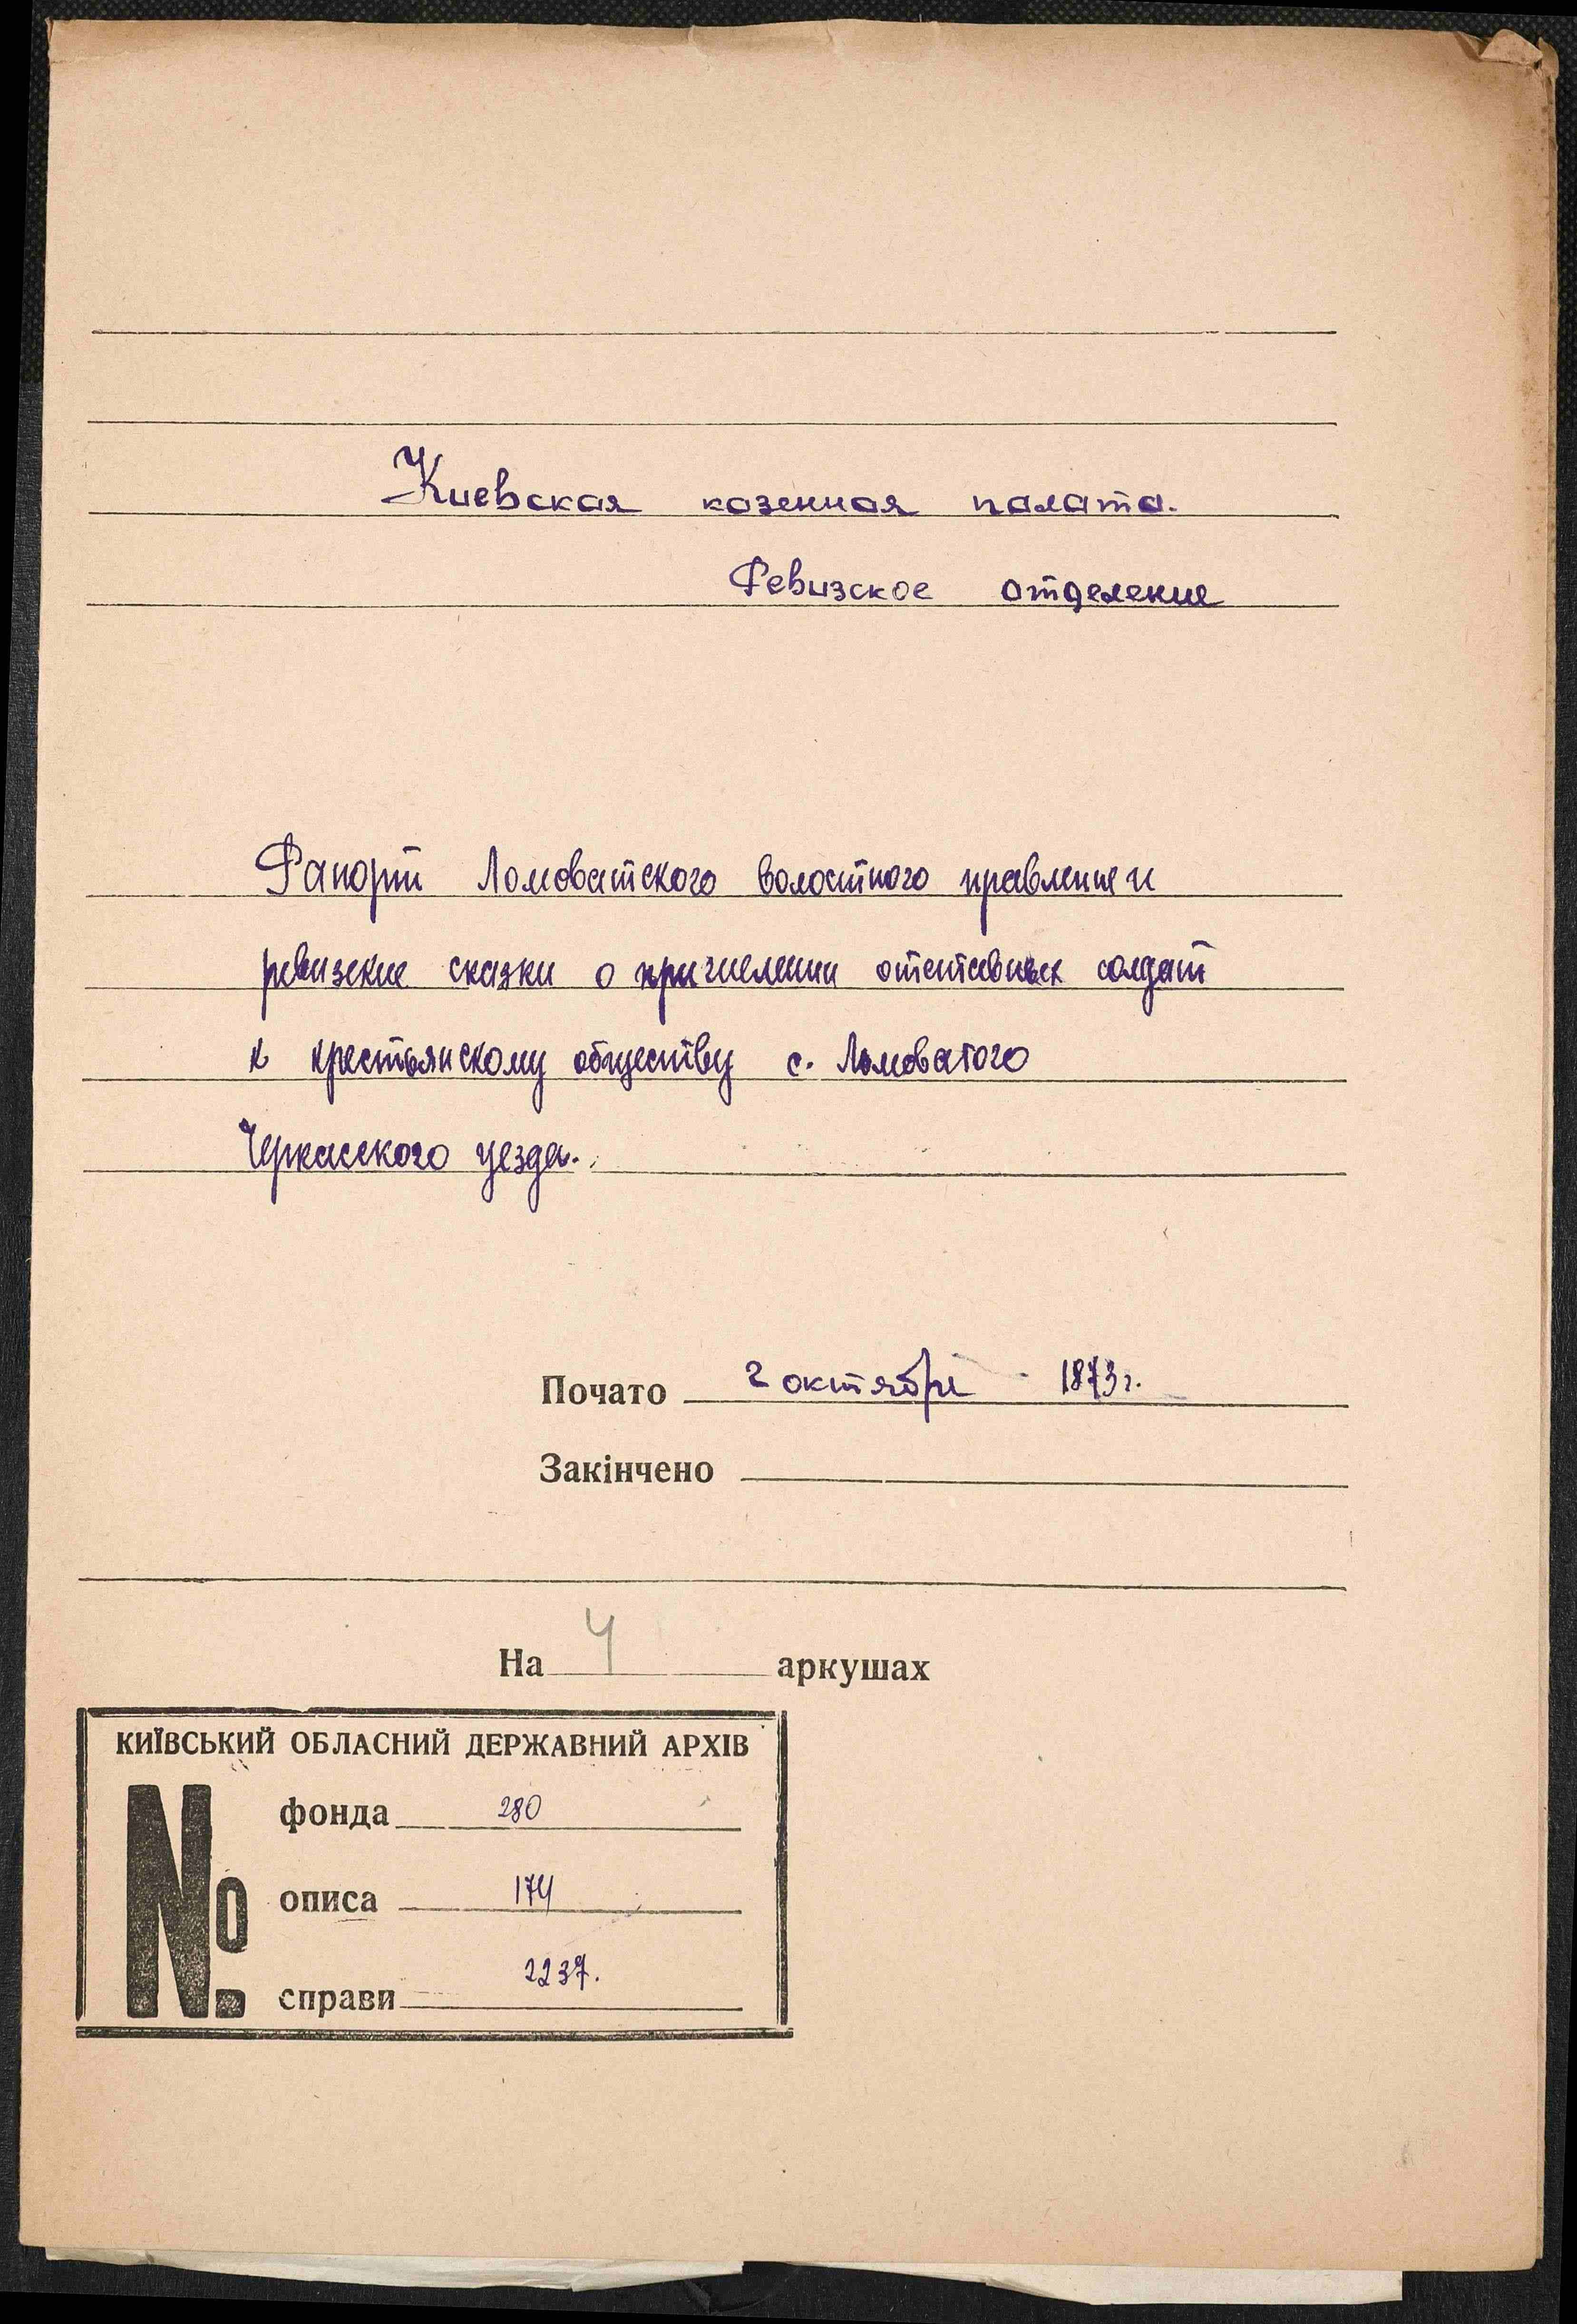 Киевская казенная палата.
Ревизское отделение
Рапорт Ломоватского волостного правления и
ревизские сказки о причислении отставных солдат
к крестьянскому обществу с. Ломоватого
Черкасского уезда.
Почато 2 октября 1873 г.
Закінчено
На 4 аркушах
КИЇВСЬКИЙ ОБЛАСНИЙ ДЕРЖАВНИЙ АРХІВ
№ фонда 280
описа 174
справи 2237.